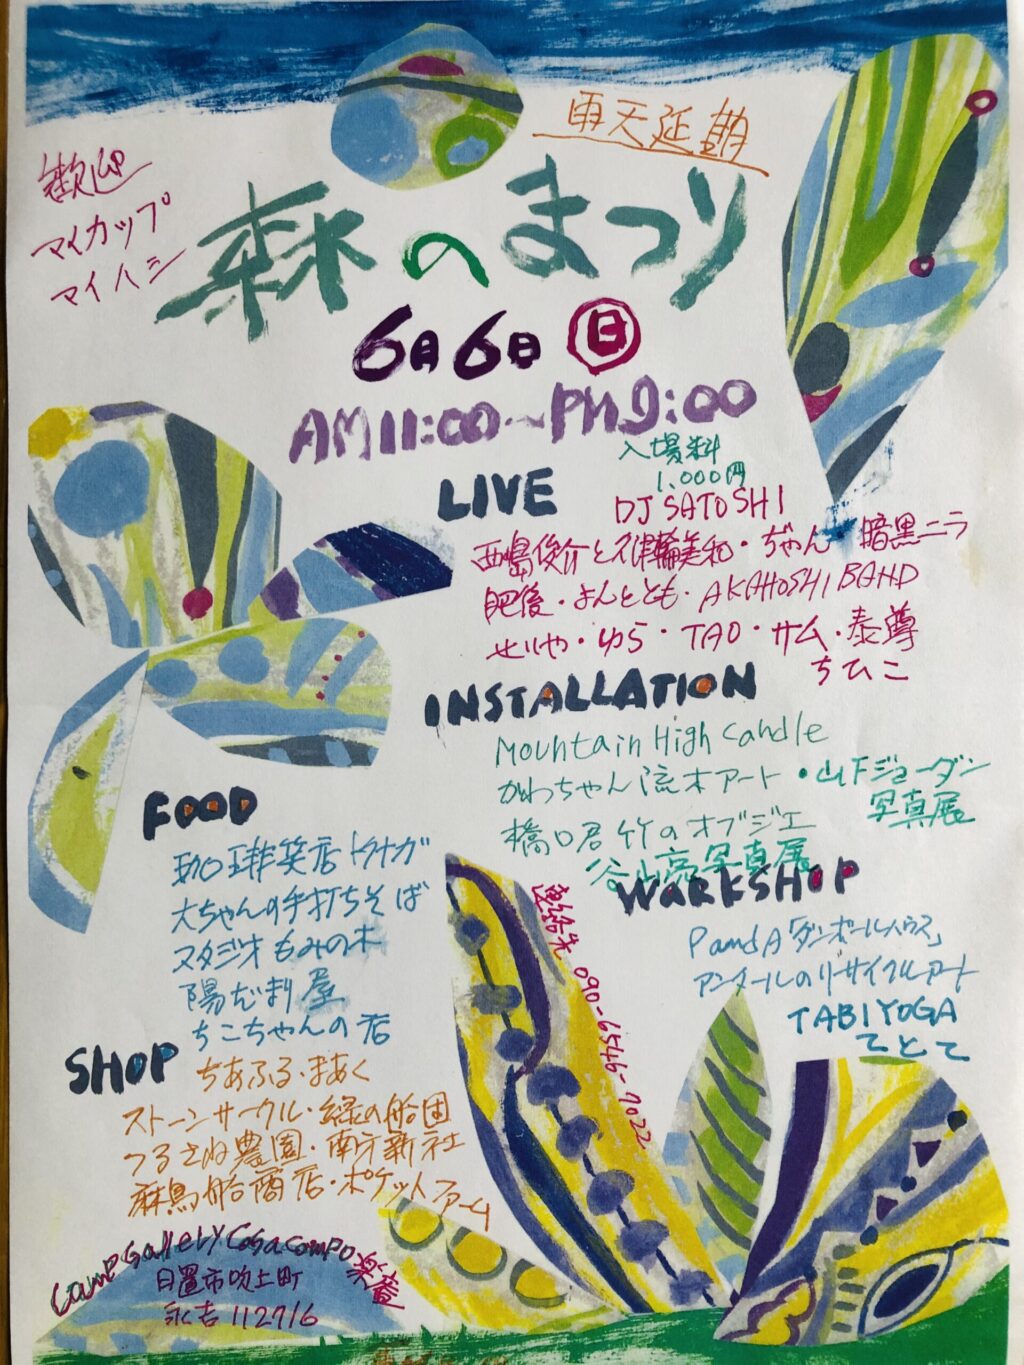 雨天延期
歓迎
マイカップ
マイハシ
森のまつり
6月6日 日
AM11:00~PM9:00
入場料
1,000円
LIVE
DJ SATOSHI
西嶋俊介と 美和・ぢゃん・暗黒ニラ
肥後・よんととも・AKAHOSHI BAND
せいや・ゆら・TAO・サム・泰尊
ちひこ
INSTALLATION
Mountain High Candle
かわっちゃん流木アート・山下ジョーダン
写真展
橋口君竹のオブジェ
谷山亮写真展
FOOD
珈琲笑店
大ちゃんの手打ちそば
スタジオもみの木
陽だまり屋
ちこちゃんの店
WORKSHOP
PandA「ダンボールハウス」
アンタールのリサイクルアート
TABIYOGA
てとて
連絡先 090-6546-7022
SHOP
ちあふる・まあく
ストーンサークル・緑の船団
つるさね農園・南方新社
麻鳥船商店・ポケットファーム
Camp Gallery Cosa Compo 楽庵
日置市吹上町
永吉 112716